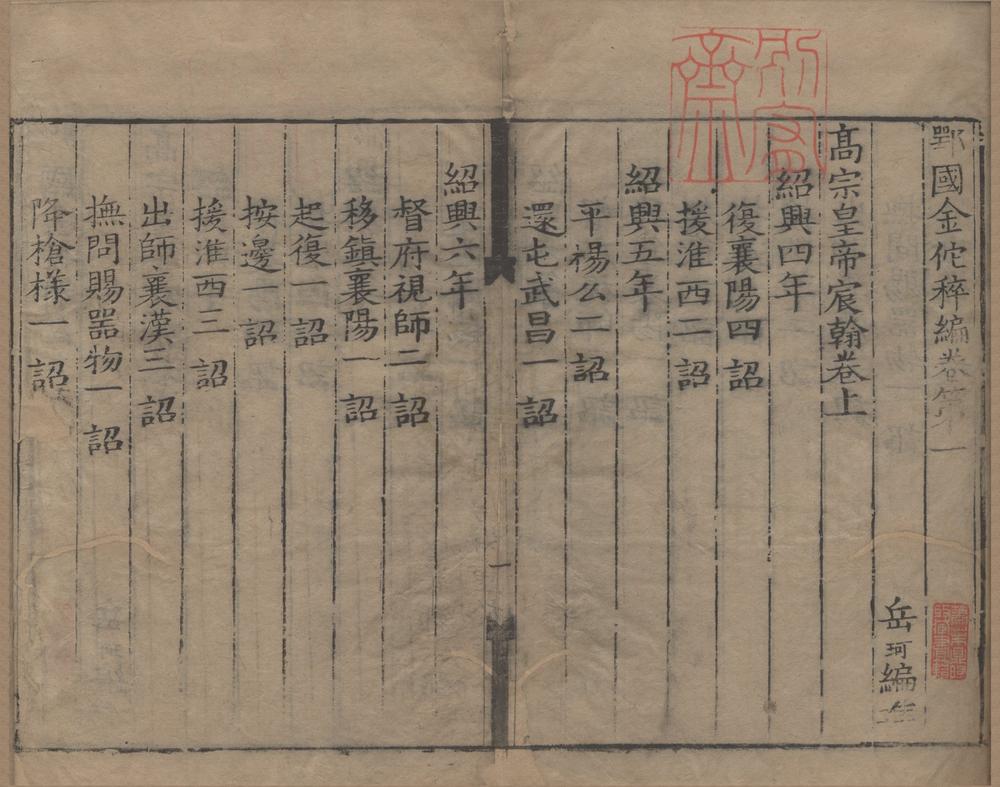 鄂國金佗稡編卷第一
岳珂編進
高宗皇帝宸翰卷上
紹興四年
復襄陽四詔
援淮西二詔
紹興五年
平楊么二詔
還屯武昌一詔
一
紹興六年
督府視師二詔
移鎮襄陽一詔
起復一詔
按邊一詔
援淮西三詔
出師襄漢三詔
撫問賜器物一詔
降槍樣一詔